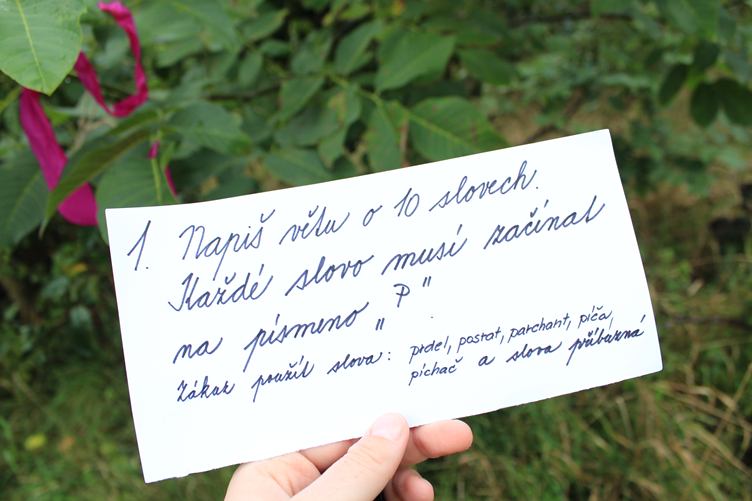 1. Napiš větu o 10 slovech.
Každé slovo musí začínat
na písmeno "P"
Zákaz použít slova: prdel, posrat, parchant, píča,
píchač a slova příbuzná